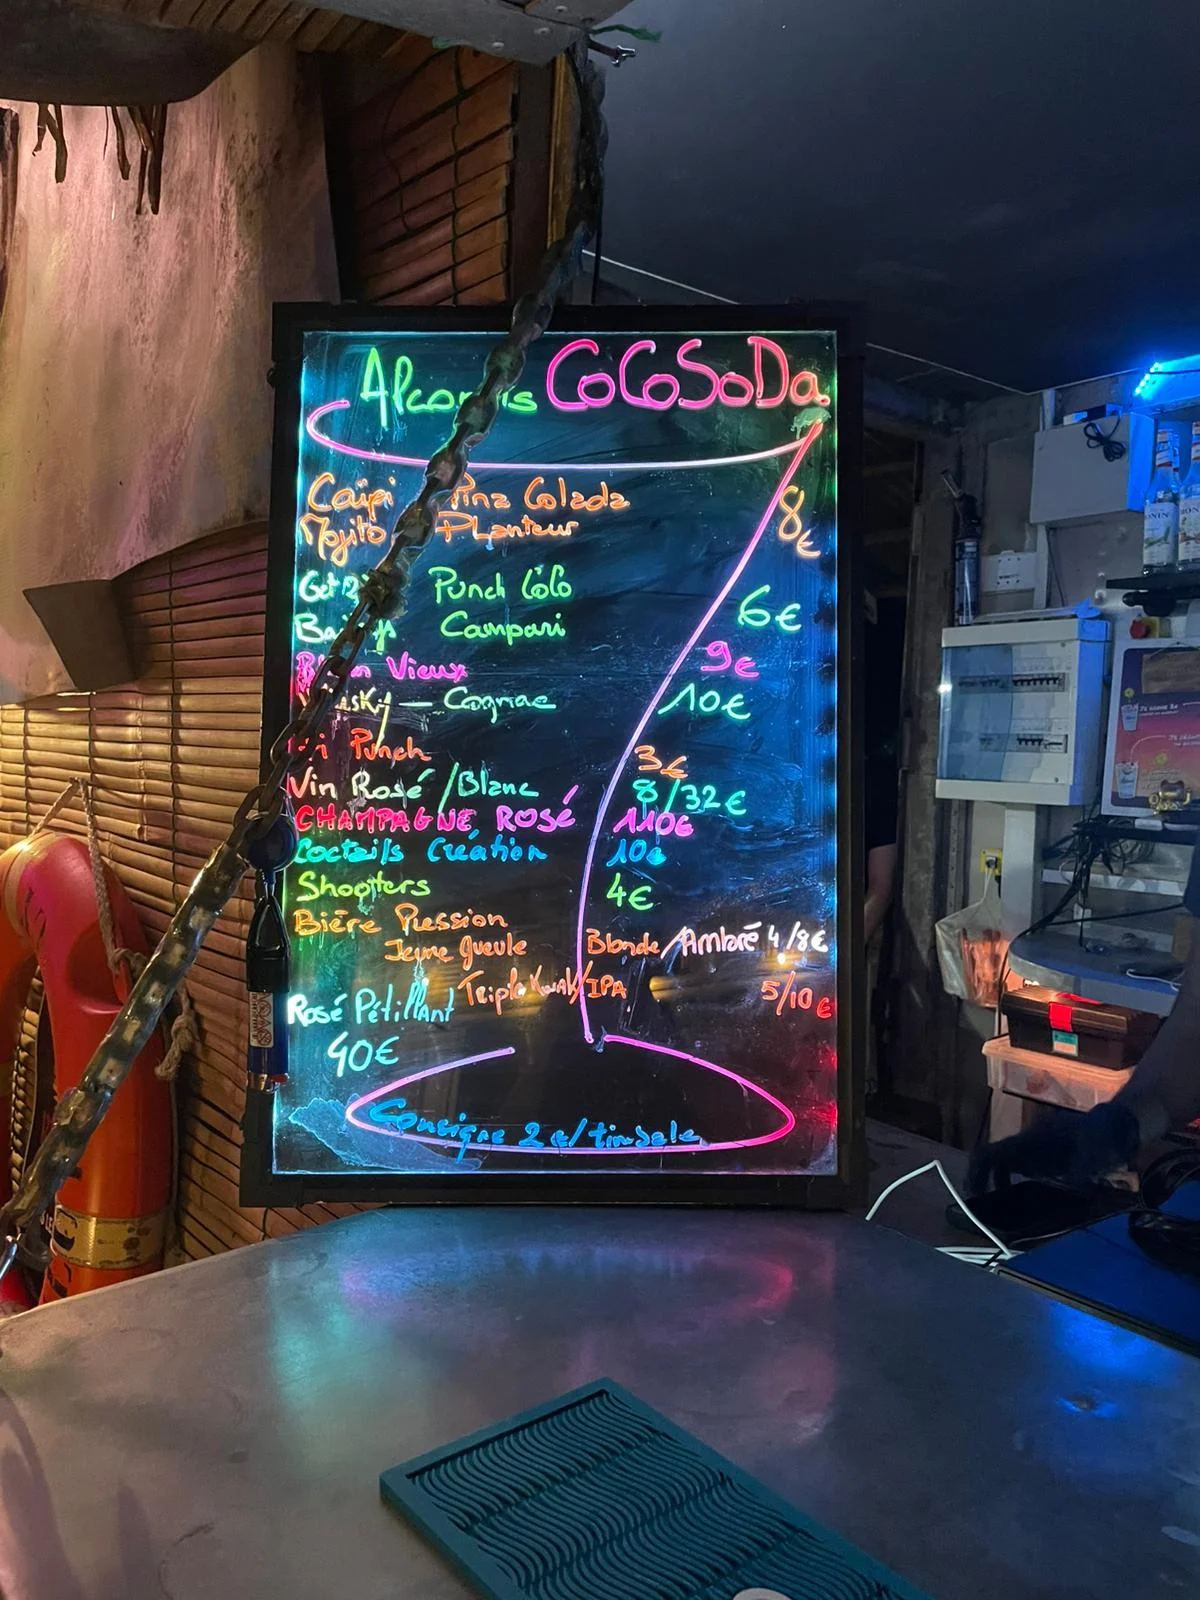 Alcools CoCoSoDa
Caïpi Pina Colada
Mojito Planteur
8€
Get 27 Punch CoCo
Baileys Campari
6€
Rhum Vieux 9€
Whisky — Cognac 10€
Ti Punch 3€
Vin Rosé/Blanc 8/32€
CHAMPAGNE ROSÉ 110€
Coctails Création 10€
Shooters 4€
Bière Pression
Jeune Gueule Blonde/Ambré 4/8€
Triple Kwak/IPA 5/10€
Rosé Pétillant
40€
Consigne 2€/timbale